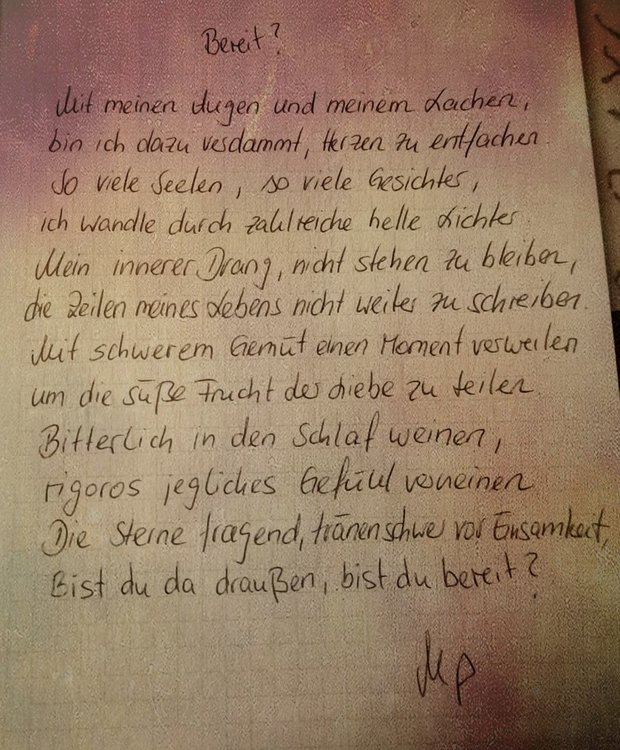 Bereit?
Mit meinen Augen und meinem Lachen,
bin ich dazu verdammt, Herzen zu entfachen.
So viele Seelen, so viele Gesichter,
ich wandle durch zahlreiche helle Lichter.
Mein innerer Drang, nicht stehen zu bleiben,
die Zeilen meines Lebens nicht weiter zu schreiben.
Mit schwerem Gemüt einen Moment verweilen
um die süße Frucht der Liebe zu teilen.
Bitterlich in den Schlaf weinen,
rigoros jegliches Gefühl verneinen
Die Sterne fragend, tränenschwer vor Einsamkeit,
Bist du da draußen, bist du bereit?
MP